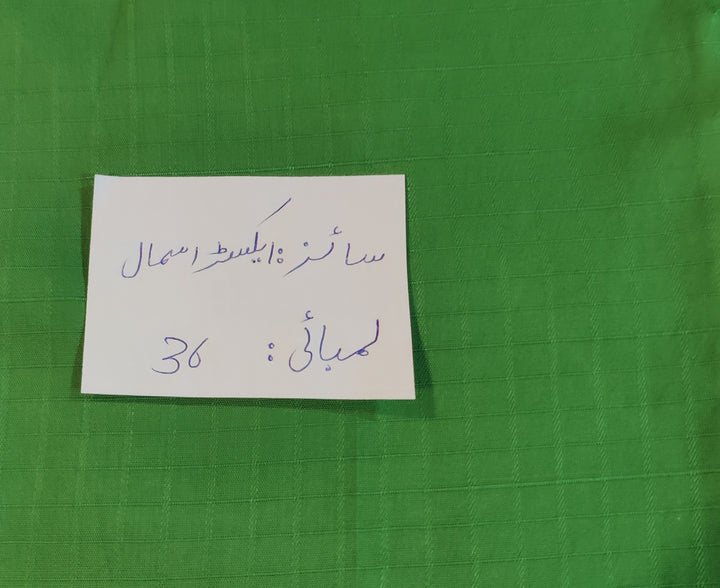 سائز: ایکسٹرا سمال
لمبائی: 36